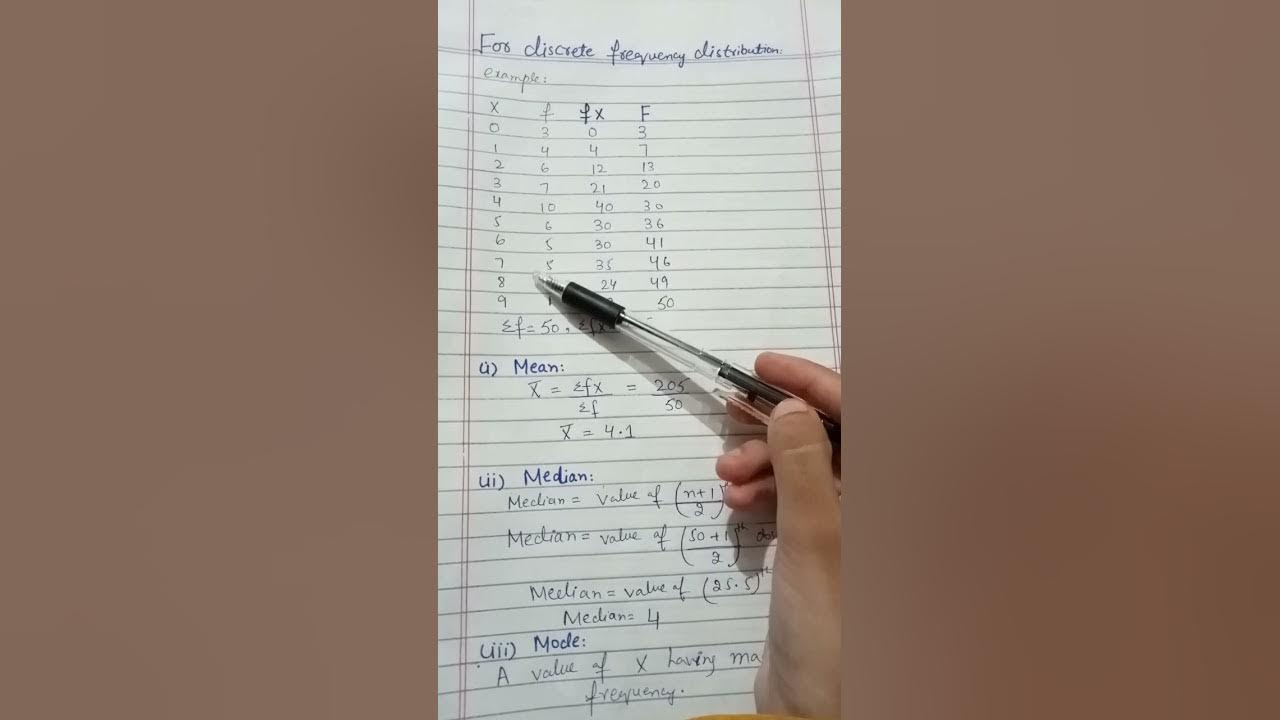 For discrete frequency distribution:
example:
X f fx F
0 3 0 3
1 4 4 7
2 6 12 13
3 7 21 20
4 10 40 30
5 6 30 36
6 5 30 41
7 5 35 46
8 24 49
9 1 50
Σf = 50, Σfx
(i) Mean:
X̄ = Σfx / Σf = 205 / 50
X̄ = 4.1
(ii) Median:
Median = Value of (n+1 / 2)
Median = value of (50+1 / 2)th
Median = value of (25.5)th
Median = 4
(iii) Mode:
A value of X having
frequency.